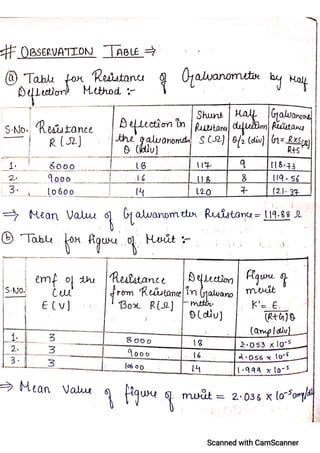 # OBSERVATION TABLE ⇒
(a) Table for Resistance of Galvanometer by Half
Deflection Method :-
S.No. Resistance R (Ω) Deflection in the galvanometer θ (div) Shunt Resistance S (Ω) Half deflection θ/2 (div) Galvanometer Resistance G = R×S/R-S (Ω)
1. 8000 18 117 9 118.73
2. 9000 16 118 8 119.56
3. 10600 14 120 7 121.37
⇒ Mean Value of Galvanometer Resistance = 119.88 Ω
(b) Table for figure of Merit :-
S.No. emf of the Cell E (V) Resistance from Resistance Box R(Ω) Deflection in Galvanometer θ (div) Figure of merit K = E/(R+G)θ (amp/div)
1. 3 8000 18 2.053 × 10⁻⁵
2. 3 9000 16 2.056 × 10⁻⁵
3. 3 10600 14 1.999 × 10⁻⁵
⇒ Mean Value of figure of merit = 2.036 × 10⁻⁵ amp/div
Scanned with CamScanner